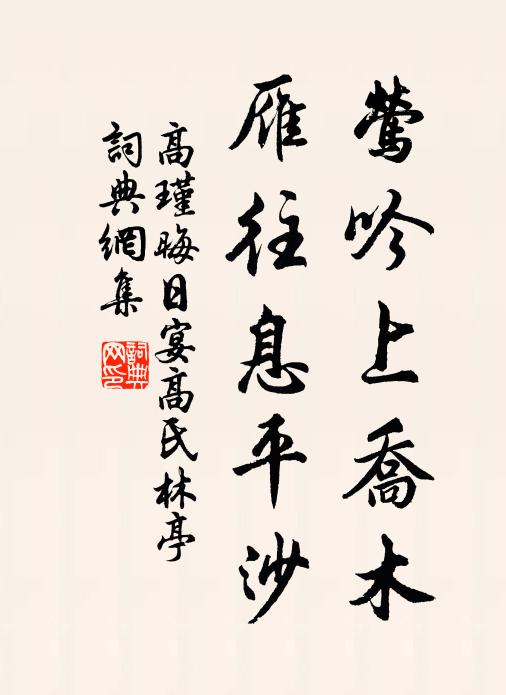 鶯吟上喬木
雁往息平沙
高瑾晦日宴高氏林亭
詞典網集
詞典網印